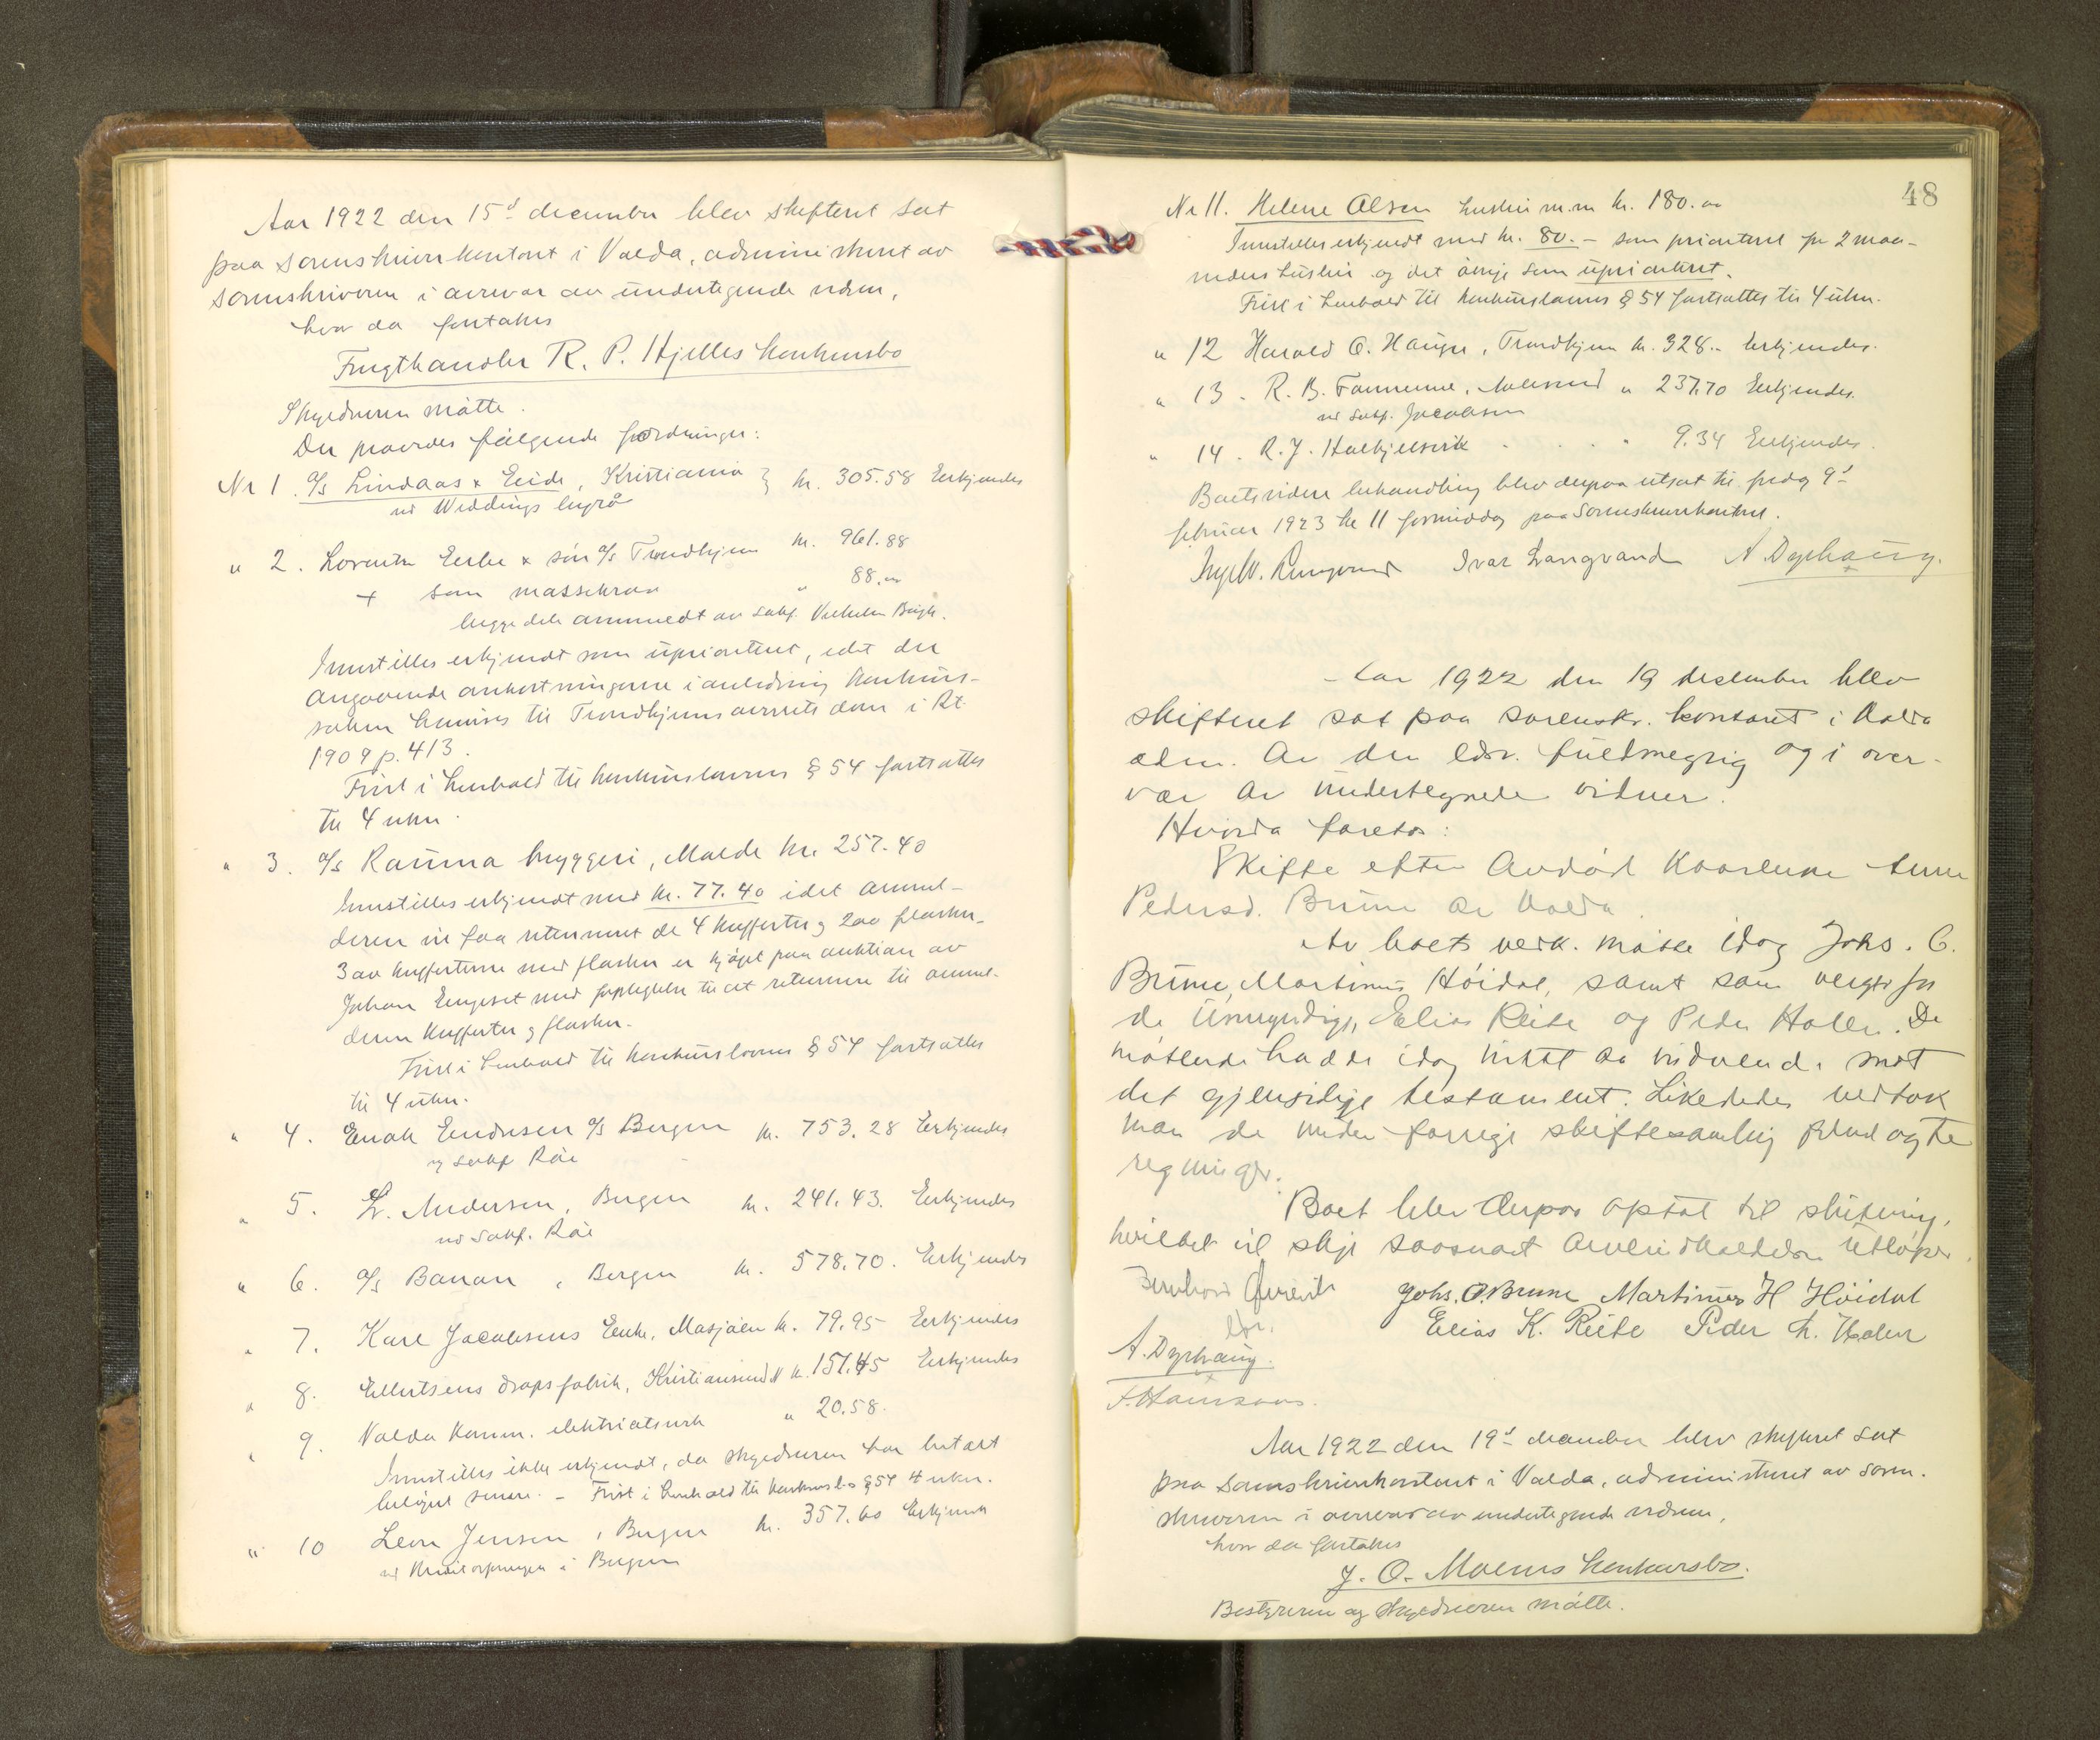 Aar 1922 den 15d december blev skifteret sat
paa sorenskriverkontoret i Volda, administrert av
sorenskriveren i overvær av undertegnede vidner,
hvor da foretokes
Frugthandler R. P. Hjelles konkursbo
Skyldneren møtte.
Der prøvedes følgende fordringer:
Nr 1. A/s Lindaas & Eide, Kristiania kr. 305.58 Erkjendes
ved Weddings byrå
" 2. Lorentz Erbe & søn A/s Trondhjem kr. 961.88
+ som massekrav " 88.00
begge dele anmeldt av sakf. Bugge.
Innstilles erkjendt som uprioritert, idet der
angaaende omkostningerne i anledning konkurs-
saken henvises til Trondhjems overrets dom i Rt.
1909 p. 413.
Frist i henhold til konkurslovens § 54 fortsattes
til 4 uker.
" 3. A/s Rauma bryggeri, Molde kr. 257.40
Innstilles erkjendt med kr. 77.40 idet anmel-
deren vil faa returnert de 4 kufferter og 200 flasker.
3 av kufferterne med flasker er kjøpt paa auktion av
Johan Engeset med forpligtelse til at returnere til anmel-
deren kufferter og flasker.
Frist i henhold til konkurslovens § 54 fortsattes
til 4 uker.
" 4. Enok Endresen A/s Bergen kr. 753.28 Erkjendes
ved sakf. Råe
" 5. L. Andersen, Bergen kr. 241.43. Erkjendes
ved sakf. Råe
" 6. A/s Banan, Bergen kr. 578.70. Erkjendes
" 7. Karl Jacobsens Enke, Mosjøen kr. 79.95 Erkjendes
" 8. Ellertsens dropsfabrik, Kristiansund N kr. 151.45 Erkjendes
" 9. Volda komm. elektricitetsverk " 20.58.
Innstilles ikke erkjendt, da skyldneren har betalt
beløpet senere. – Frist i henhold til konkursl. § 54 4 uker.
" 10 Leon Jensen, Bergen kr. 357.60 Erkjendes
ved i Bergen
48
Nr 11. Helene Olsen husleie m.m kr. 180.00
Innstilles erkjendt med kr. 80.– som prioritert for 2 maa-
neders husleie og det øvrige som uprioritert.
Frist i henhold til konkurslovens § 54 fortsattes til 4 uker.
" 12 Harald O. Hauger, Trondhjem kr. 328.– Erkjendes.
" 13. R. B. , Aalesund " 237.70 Erkjendes.
ved sakf. Jacobsen
" 14. R. J. Halkjelsvik " 9.34 Erkjendes.
Boets videre behandling blev derpaa utsat til fredag 9d
februar 1923 kl 11 formiddag paa sorenskriverkontoret.
Ivar Langvand A. Dyrhaug.
Aar 1922 den 19 desember blev
skifteret sat paa sorenskr. kontoret i Volda
adm. av den edsv. fuldmegtig og i over-
vær av undertegnede vidner.
Hvorda foretos:
Skifte efter avdød Kaarlene Anne
Pedersd. Brune av Volda.
Av boets vedk. møtte idag Johs. O.
Brune, Martinus Høidal, samt som verger for
de umyndige, Elias Reite og Peder Holen. De
møttende hadde idag intet at indvende mot
det gjensidige testament. Likeledes vedtok
man de under forrige skiftesamling fremlagte
regninger.
Boet blev derpaa optat til slutning,
hvilket vil skje saasnart utløper.
Johs. O. Brune Martinus H Höidal
edsv. Elias K. Reite Peder L. Holen
A. Dyrhaug.
Aar 1922 den 19d december blev skifteret sat
paa sorenskriverkontoret i Volda, administrert av soren-
skriveren i overvær av undertegnede vidner,
hvor da foretokes
J. O. Moens konkursbo.
Bestyreren og skyldneren møtte.